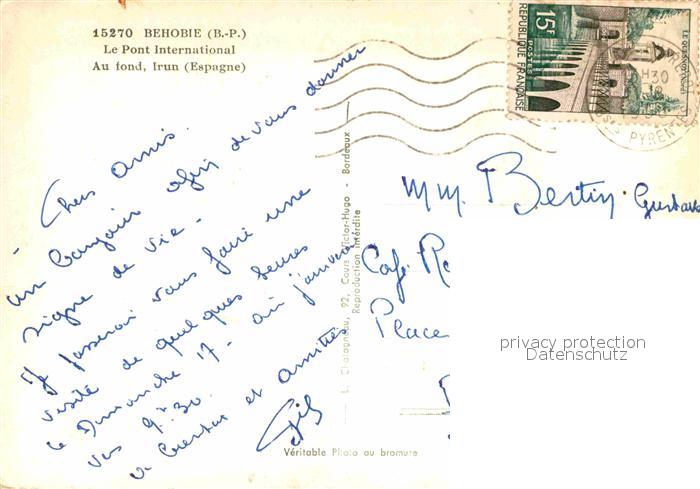 15270 BEHOBIE (B.-P.)
Le Pont International
Au fond, Irun (Espagne)
15F
REPUBLIQUE FRANÇAISE
POSTES
LE QUESNOY
H30
PYREN
Chers Amis.
un afin de vous donner
signe de vie -
Je passerai vous faire une
visite de quelques heures
le Dimanche 17 - où j'arriverai
vers 9h30.
et amitiés
Gil
L. Chatagneau, 92, Cours Victor-Hugo - Bordeaux
Reproduction interdite
Véritable Photo au bromure
MM. Bertin Gustave
Café
Place
privacy protection
Datenschutz